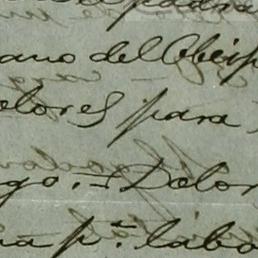 ano del Obisp
olores para
go. - Dolor
na pª. labo